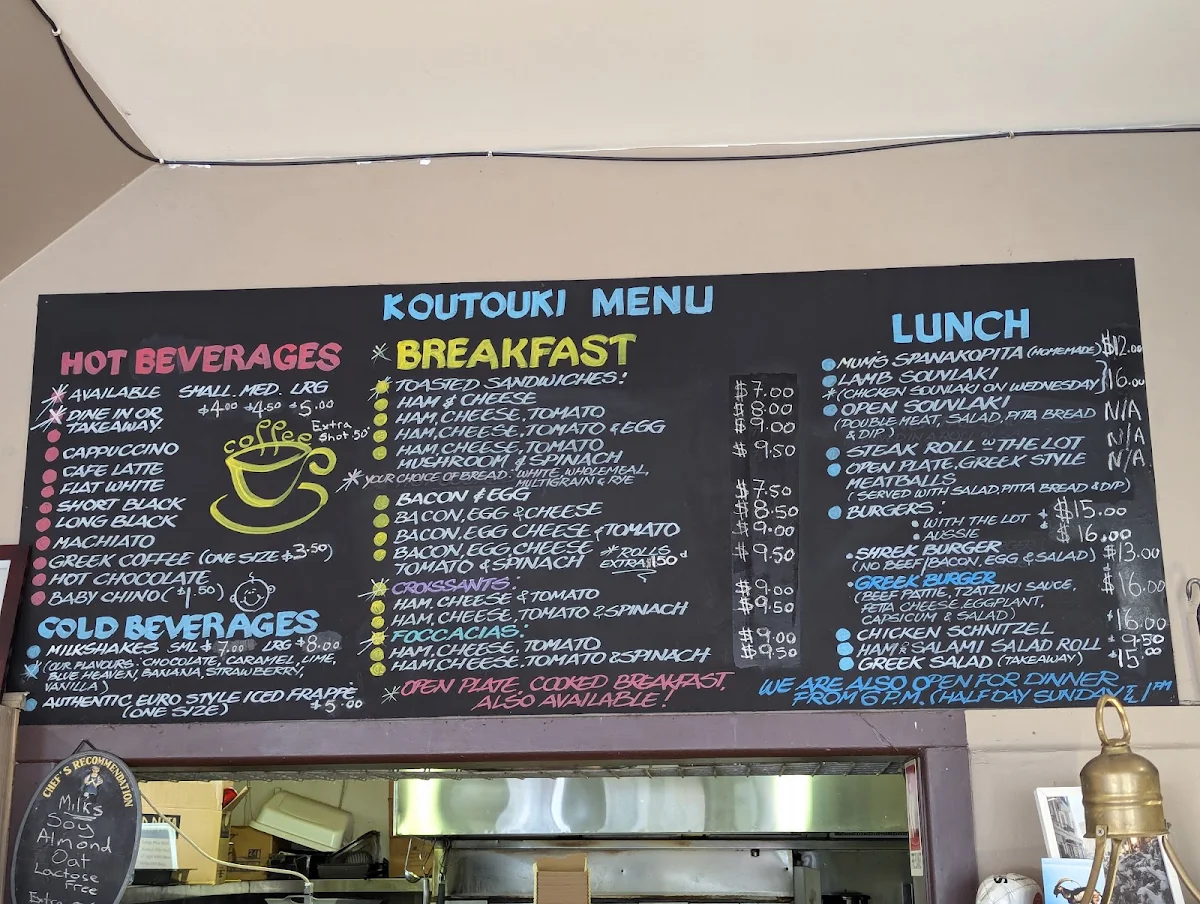 KOUTOUKI MENU
HOT BEVERAGES
AVAILABLE SMALL. MED. LRG
DINE IN OR $4.00 $4.50 $5.00
TAKEAWAY.
coffee Extra Shot .50
CAPPUCCINO
CAFE LATTE
FLAT WHITE
SHORT BLACK
LONG BLACK
MACHIATO
GREEK COFFEE (ONE SIZE $3.50)
HOT CHOCOLATE
BABY CHINO ($1.50)
COLD BEVERAGES
MILKSHAKES SML $7.00 LRG $8.00
(OUR FLAVOURS: CHOCOLATE, CARAMEL, LIME,
BLUE HEAVEN, BANANA, STRAWBERRY,
VANILLA)
AUTHENTIC EURO STYLE ICED FRAPPÉ
(ONE SIZE) $5.00
BREAKFAST
TOASTED SANDWICHES:
HAM & CHEESE $7.00
HAM, CHEESE, TOMATO $8.00
HAM, CHEESE, TOMATO & EGG $9.00
HAM, CHEESE, TOMATO
MUSHROOM & SPINACH $9.50
*YOUR CHOICE OF BREAD: WHITE, WHOLEMEAL,
MULTIGRAIN & RYE
BACON & EGG $7.50
BACON, EGG & CHEESE $8.50
BACON, EGG CHEESE & TOMATO $9.00
BACON, EGG CHEESE
TOMATO & SPINACH $9.50
*ROLLS
EXTRA $1.50
CROISSANTS:
HAM, CHEESE & TOMATO $9.00
HAM, CHEESE, TOMATO & SPINACH $9.50
FOCCACIAS:
HAM, CHEESE, TOMATO $9.00
HAM, CHEESE, TOMATO & SPINACH $9.50
*OPEN PLATE, COOKED BREAKFAST,
ALSO AVAILABLE!
LUNCH
MUM'S SPANAKOPITA (HOMEMADE) $12.00
LAMB SOUVLAKI
*(CHICKEN SOUVLAKI ON WEDNESDAY) 16.00
OPEN SOUVLAKI N/A
(DOUBLE MEAT, SALAD, PITA BREAD
& DIP)
STEAK ROLL w THE LOT N/A
OPEN PLATE, GREEK STYLE N/A
MEATBALLS
(SERVED WITH SALAD, PITTA BREAD & DIP)
BURGERS:
• WITH THE LOT $15.00
• AUSSIE $16.00
• SHREK BURGER $13.00
(NO BEEF/BACON, EGG & SALAD)
• GREEK BURGER $16.00
(BEEF PATTIE, TZATZIKI SAUCE,
FETA CHEESE EGGPLANT,
CAPSICUM & SALAD)
CHICKEN SCHNITZEL $16.00
HAM OR SALAMI SALAD ROLL $9.50
GREEK SALAD (TAKEAWAY) $15.00
WE ARE ALSO OPEN FOR DINNER
FROM 6 P.M. (HALF DAY SUNDAY TIL 1PM
CHEF'S RECOMMENDATION
Milks
Soy
Almond
Oat
Lactose
Free